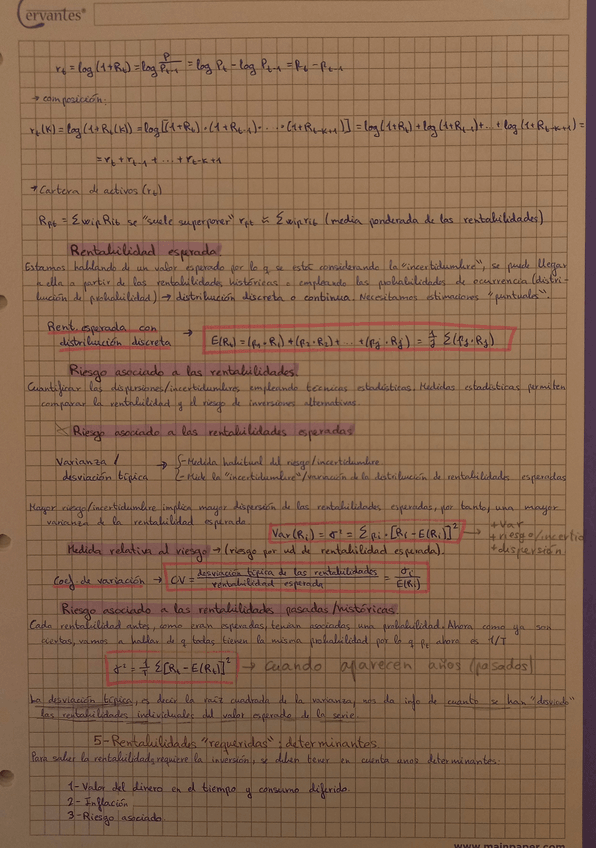 Cervantes®
r_t = log(1+R_t) = log P_t/P_t-1 = log P_t - log P_t-1 = P_t - P_t-1
→ composición:
r_t(K) = log(1+R_t(K)) = log[(1+R_t)·(1+R_t-1)·...·(1+R_t-K+1)] = log(1+R_t) + log(1+R_t-1) + .. + log(1+R_t-K+1) =
= r_t + r_t-1 + ... + r_t-K+1
→ Cartera de activos (r_t)
R_pt = Σw_ip R_it se "suele superponer" r_pt ≈ Σw_ip r_it (media ponderada de las rentabilidades)
Rentabilidad esperada
Estamos hablando de un valor esperado por lo q se está considerando la "incertidumbre", se puede llegar
a ella a partir de las rentabilidades históricas o empleando las probabilidades de ocurrencia (distri-
bución de probabilidad) → distribución discreta o continua. Necesitamos estimaciones "puntuales".
Rent. esperada con
distribución discreta → E(R_i) = (p_1·R_1) + (p_2·R_2) + ... + (p_j·R_j) = 1/J Σ(p_j·R_j)
Riesgo asociado a las rentabilidades.
Cuantificar las dispersiones/incertidumbres empleando técnicas estadísticas. Medidas estadísticas permiten
comparar la rentabilidad y el riesgo de inversiones alternativas.
Riesgo asociado a las rentabilidades esperadas
Varianza / → {-Medida habitual del riesgo/incertidumbre
desviación típica {-Mide la "incertidumbre"/variación de la distribución de rentabilidades esperadas
Mayor riesgo/incertidumbre implica mayor dispersión de las rentabilidades esperadas, por tanto, una mayor
varianza de la rentabilidad esperada.
Var(R_i) = σ² = Σ p_i · [R_i - E(R_i)]² → +var
+riesgo/incertid
+dispersión
Medida relativa al riesgo → (riesgo por ud de rentabilidad esperada).
Coef. de variación → CV = desviación típica de las rentabilidades / rentabilidad esperada = σ_i / E(R_i)
Riesgo asociado a las rentabilidades pasadas/históricas
Cada rentabilidad antes, como eran esperadas, tenían asociadas una probabilidad. Ahora como ya son
ciertas, vamos a hablar de q todas tienen la misma probabilidad por lo q p_t ahora es 1/T
σ² = 1/T Σ[R_t - E(R_t)]² → cuando aparecen años (pasados)
La desviación típica, es decir la raíz cuadrada de la varianza, nos da info de cuanto se han "desviado"
las rentabilidades individuales del valor esperado de la serie.
5-Rentabilidades "requeridas": determinantes
Para saber la rentabilidad q requiere la inversión, se deben tener en cuenta unos determinantes:
1- Valor del dinero en el tiempo y consumo diferido.
2- Inflación
3- Riesgo asociado.
www.mainpaper.com